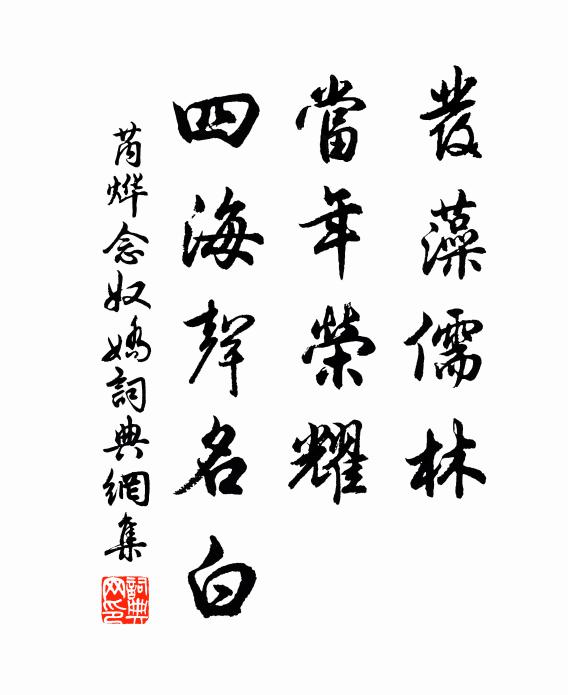 發藻儒林
當年榮耀
四海聲名白
芮烨念奴嬌詞典網集
詞典网印